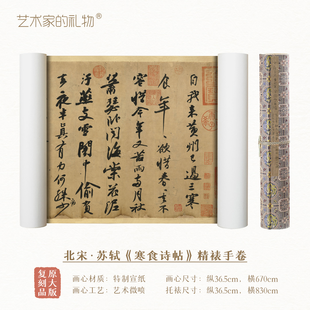 艺术家的礼物®
自我來黃州已過三寒
食年〻欲惜春〻去不
容惜今年又苦雨兩月秋
蕭瑟卧聞海棠花泥
汙燕支雪闇中偷負
去夜半真有力何殊少
北宋·苏轼《寒食诗帖》精裱手卷
原大版
复刻品
画心材质：特制宣纸
画心尺寸：纵36.5cm，横670cm
画心工艺：艺术微喷
托裱尺寸：纵36.5cm，横830cm